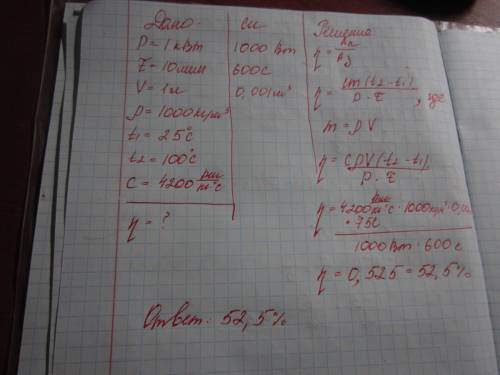 Дано.
P = 1 кВт
τ = 10 мин
V = 1 л
ρ = 1000 кг/м³
t₁ = 25°C
t₂ = 100°C
c = 4200 Дж/кг°C
η = ?
СИ
1000 Вт
600 с
0,001 м³
Решение
η = Aп/Aз
η = cm(t₂ - t₁)/P · τ, где
m = ρV
η = cρV(t₂ - t₁)/P · τ
η = 4200 Дж/кг°C · 1000 кг/м³ · 0,001
· 75°C
1000 Вт · 600 с
η = 0,525 = 52,5%
Ответ: 52,5%